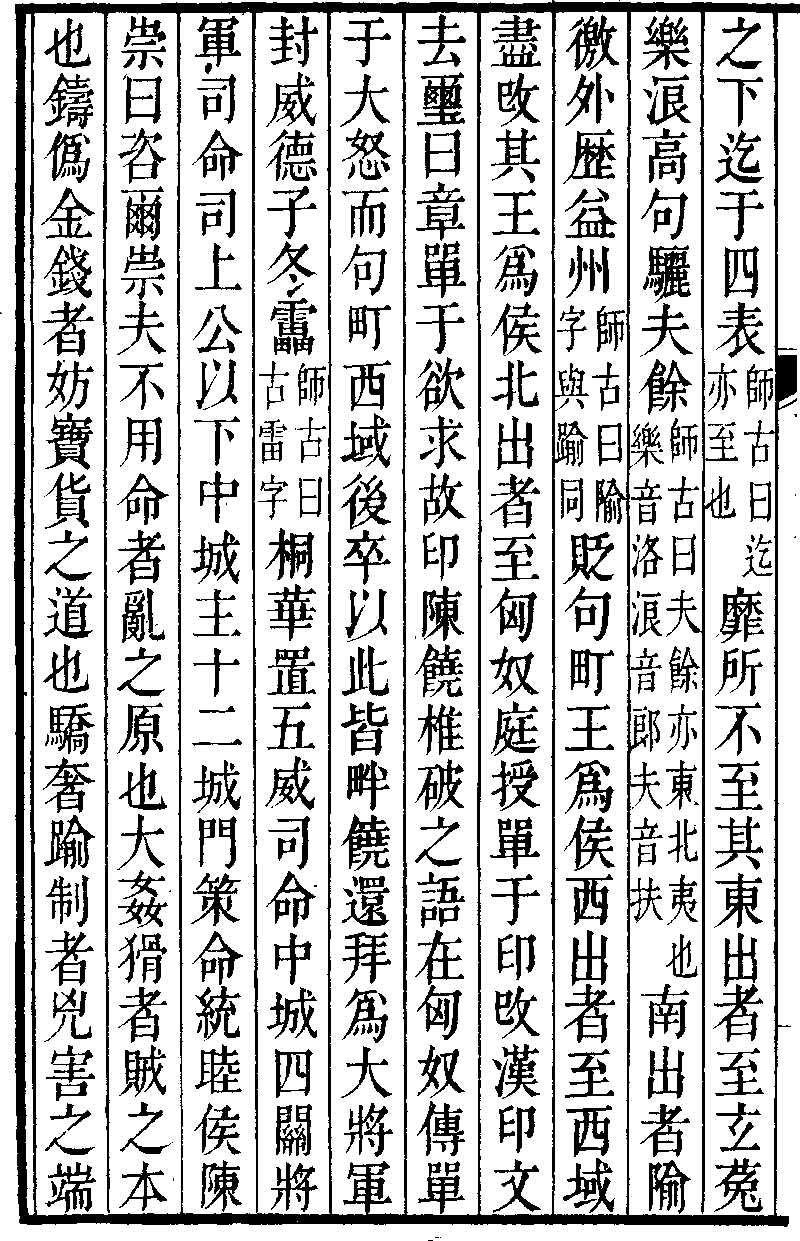 之下迄于四表師古曰迄亦至也靡所不至其東出者至玄菟
樂浪高句驪夫餘師古曰夫餘亦東北夷也樂音洛浪音郎夫音扶南出者隃
徼外歴益州師古曰隃字與踰同貶句町王爲侯西出者至西域
盡改其王爲侯北出者至匈奴庭授單于印改漢印文
去璽曰章單于欲求故印陳饒椎破之語在匈奴傳單
于大怒而句町西域後卒以此皆畔饒還拜爲大將軍
封威德子冬靁師古曰古雷字桐華置五威司命中城四關將
軍司命司上公以下中城主十二城門策命統睦侯陳
崇曰咨爾崇夫不用命者亂之原也大姦猾者賊之本
也鑄僞金錢者妨寶貨之道也驕奢踰制者兇害之端